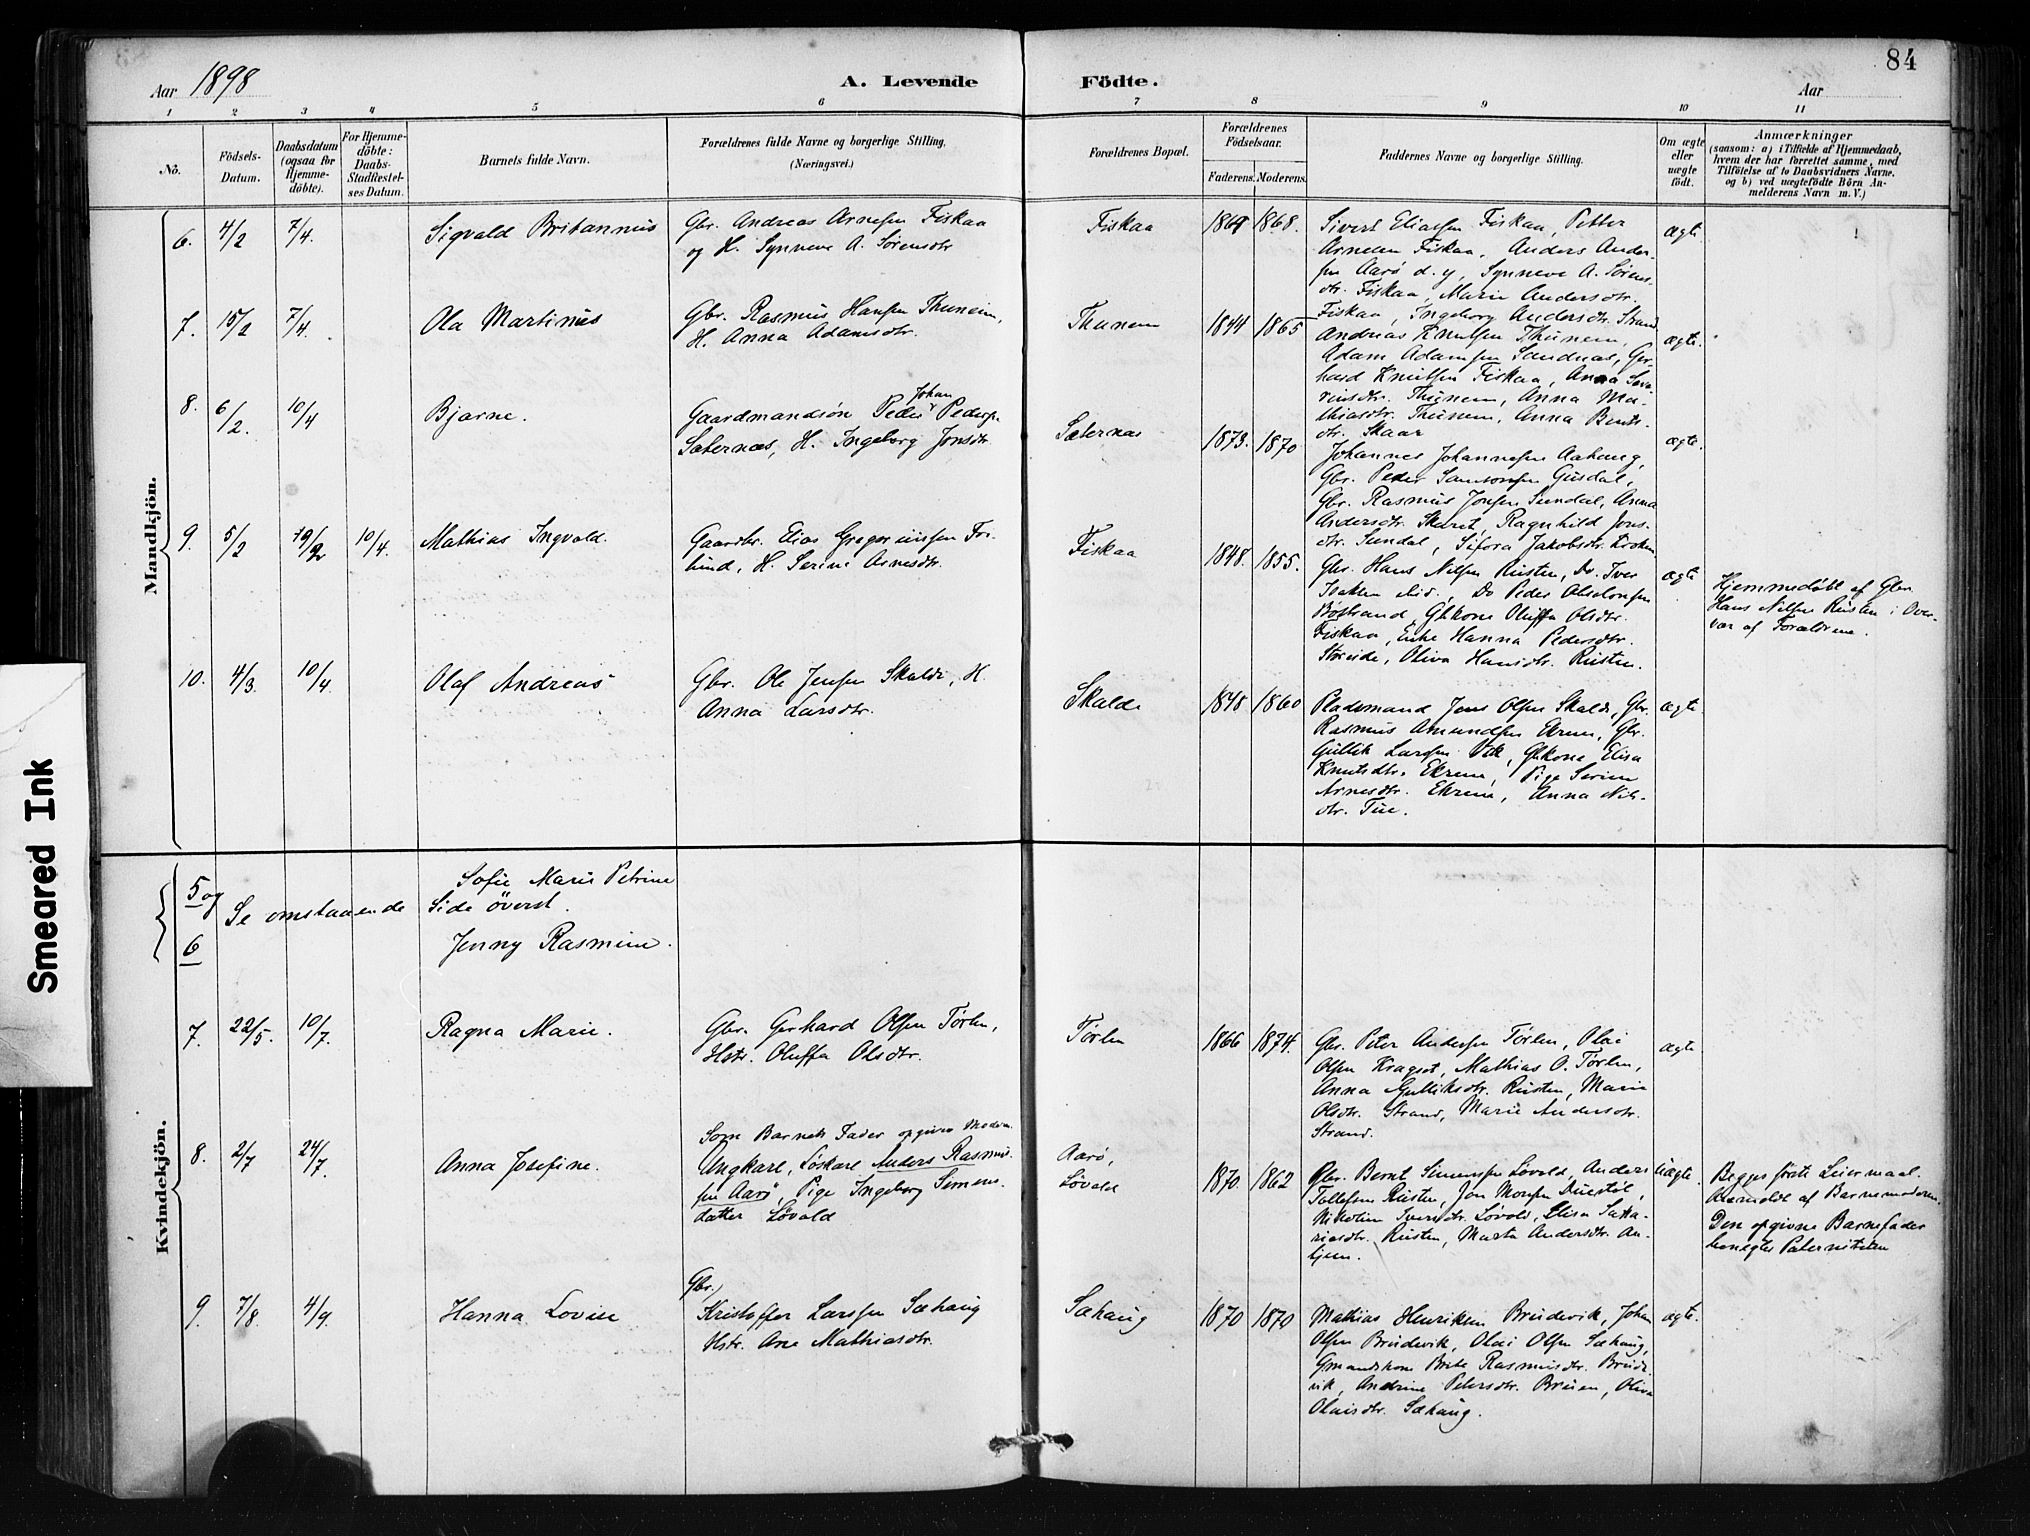 84
Aar 1898
A. Levende Födte.
Aar
1 2 3 4 5 6 7 8 9 10 11
No.
Födsels-Datum.
Daabsdatum (ogsaa for Hjemme-döbte).
For Hjemme-döbte: Daabs-Stadfæstel-ses Datum.
Barnets fulde Navn.
Forældrenes fulde Navne og borgerlige Stilling.
(Næringsvei.)
Forældrenes Bopæl.
Forældrenes Födselsaar.
Faderens. Moderens.
Faddernes Navne og borgerlige Stilling.
Om ægte eller uægte födt.
Anmærkninger
(saasom: a) i Tilfælde af Hjemmedaab,
hvem der har forrettet samme, med
Tilföielse af to Daabsvidners Navne,
og b) ved uægtefödte Börn An-
melderens Navn m. V.)
Mandkjön.
6. 4/2 7/4. Sigvald Britannus
Gbr. Andreas Arnesen Fiskaa
og H. Synneve A. Sørensdtr
Fiskaa
1868.
Sivert Eliassen Fiskaa, Petter
Arnesen Fiskaa, Anders Ander-
sen Aarø d. y, Synneve A. Sørens-
dtr. Fiskaa, Marie Andersdtr.
Fiskaa, Ingeborg Andersdtr. Strand
ægte.
7. 15/2 7/4. Ola Martinus
Gbr. Rasmus Hansen Thunem,
H. Anna Adamsdtr.
Thunem
1844 1865
Andreas Knutsen Thunem,
Adam Adamsen Sandnæs, Ger-
hard Knutsen Fiskaa, Anna Seve-
rinsdtr. Thunem, Anna Ma-
thiasdtr. Thunem, Anna Bents-
dtr. Skaar
ægte.
8. 6/2. 10/4 Bjarne.
Gaardmandsön Peder Johan Peders.
Sæternæs, H. Ingeborg Jonsdtr.
Sæternæs
1873. 1870
Johannes Johannesen Aahaug,
Gbr. Peder Samsonsen Gusdal,
Gbr. Rasmus Jonsen Sundal, Anna
Andersdtr. Skaret, Ragnhild Jons-
dtr. Sundal, Sifora Jakobsdtr. Kroken
ægte.
9. 5/2 10/4. Mathias Ingvald.
Gaardbr. Elias Gregoriussen Fri-
lund, H. Serine Arnesdtr.
Fiskaa
1848. 1855.
Gbr. Hans Nilsen Rusten, Do. Iver
Isaksen Eid, Do Peder Absolonsen
Bøstrand, Gbkone Oluffa Olsdtr.
Fiskaa, Enke Hanna Pedersdtr.
Støreide, Oliva Hansdtr. Rusten.
ægte
Hjemmedøbt af Gbr.
Hans Nilsen Rusten i Over-
vær af Forældrene.
10. 4/3. 10/4. Olaf Andreas
Gbr. Ole Jensen Skalde, H.
Anna Larsdtr.
Skalde
1848 1860
Pladsmand Jens Olsen Skalde, Gbr.
Rasmus Amundsen Ekrem, Gbr.
Gullik Larsen Vik, Gbkone Elisa
Knutsdtr. Ekrem, Pige Serine
Arnesdtr. Ekrem, Anna Nils-
dtr. Tue.
ægte
Kvindekjön.
5 og 6
Sofie Marie Petrine
Se omstaaende Side överst.
Jenny Rasmine.
7. 22/5. 10/7. Ragna Marie.
Gbr. Gerhard Olsen Tørlen,
Hstr. Oluffa Olsdtr.
Tørlen
1866 1874.
Gbr. Peter Andersen Tørlen, Olai
Olsen Kragset, Mathias O. Tørlen,
Anna Gulliksdtr. Rusten, Marie
Olsdtr. Strand, Marie Andersdtr.
Strand.
ægte
8. 2/7 24/7 Anna Josefine.
Som Barnets Fader opgiver Moderen
Ungkarl, Løskarl Anders Rasmus-
sen Aarø, Pige Ingeborg Simens-
datter Løvold
Aarø,
Løvold
1870. 1862
Gbr. Bernt Simensen Løvold, Anders
Tollefsen Rusten, Jon Monsen Duestøl,
Nikoline Iversdtr. Løvold, Elisa Saka-
riasdtr. Rusten, Marta Andersdtr. An-
hjem.
uægte.
Begges første Leiermaal.
Anmeldt af Barnemoderen.
Den opgivne Barnefader
benegter Paterniteten
9. 7/8. 4/9. Hanna Lovise
Gbr.
Kristoffer Larsen Sæhaug
Hstr. Ane Mathiasdtr.
Sæhaug
1870 1870
Mathias Henriksen Brudevik, Johan
Olsen Brudevik, Olai Olsen Sæhaug,
Gmandskone Brite Rasmusdtr. Brude-
vik, Andrine Petersdtr. Bruen, Oliva
Olaisdtr. Sæhaug.
ægte.
Smeared Ink